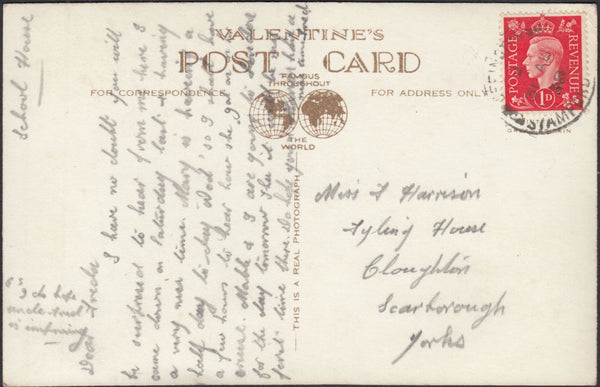 VALENTINE'S
POST CARD
FAMOUS
THROUGHOUT
THE
WORLD
FOR CORRESPONDENCE
FOR ADDRESS ONLY
THIS IS A REAL PHOTOGRAPH
POSTAGE
REVENUE
1D
STAMP
School House
Dear Freda
I have no doubt you will
be surprised to hear from me here I
came down on Saturday last & having
a very nice time. Mary is having a
half day to day Wed' so I shall have
a few hours to hear how she got on
cruise. Mable & I are going to
for the day tomorrow Thu it will be my
first time there. Do hope you
P.S
I do hope
uncle Fred
is improving
Miss F Harrison
Tyling House
Cloughton
Scarborough
Yorks